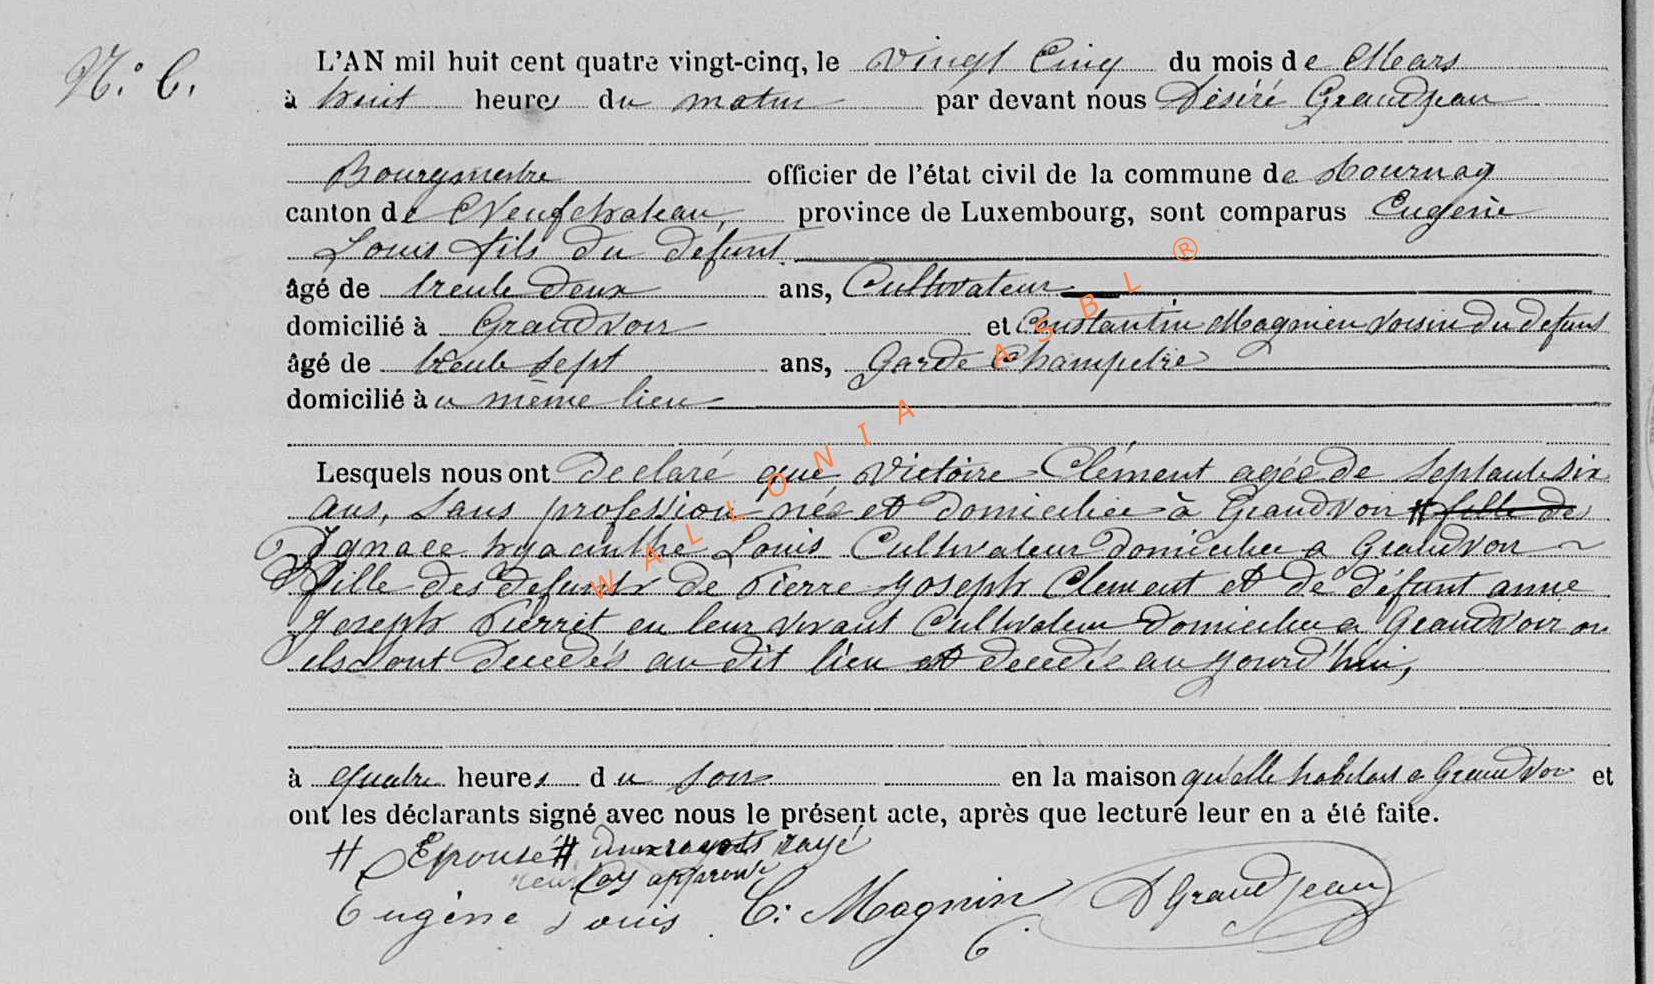 N.° 6.
L'AN mil huit cent quatre vingt-cinq, le vingt Cinq du mois de Mars
à huit heures du matin par devant nous Désiré Grandjean
Bourgmestre officier de l'état civil de la commune de Tournay
canton de Neufchateau, province de Luxembourg, sont comparus Eugène
Louis fils du defunt
âgé de trente deux ans, Cultivateur
domicilié à Grandvoir et Constantin Magnien voisin du defunt
âgé de trente sept ans, Garde Champetre
domicilié à u même lieu
Lesquels nous ont declaré que Victoire Clément agée de septante six
ans, sans profession née et domiciliée à Grandvoir # fille de
Ignace hyacinthe Louis Cultivateur domicilié a Grandvoir
Fille des defunts de Pierre Joseph Clement et de défunt anne
Joseph Pierret en leur vivant Cultivateur domicilié a Grandvoir ou
ils sont decedés au dit lieu et decedée aujourd'hui,
à quatre heures du soir en la maison qu'elle habitait a Grandvoir et
ont les déclarants signé avec nous le présent acte, après que lecture leur en a été faite.
# Epouse # rayé
approuvé
Eugène Louis C. Magnin D Grandjean
WALLONIA ASBL ®